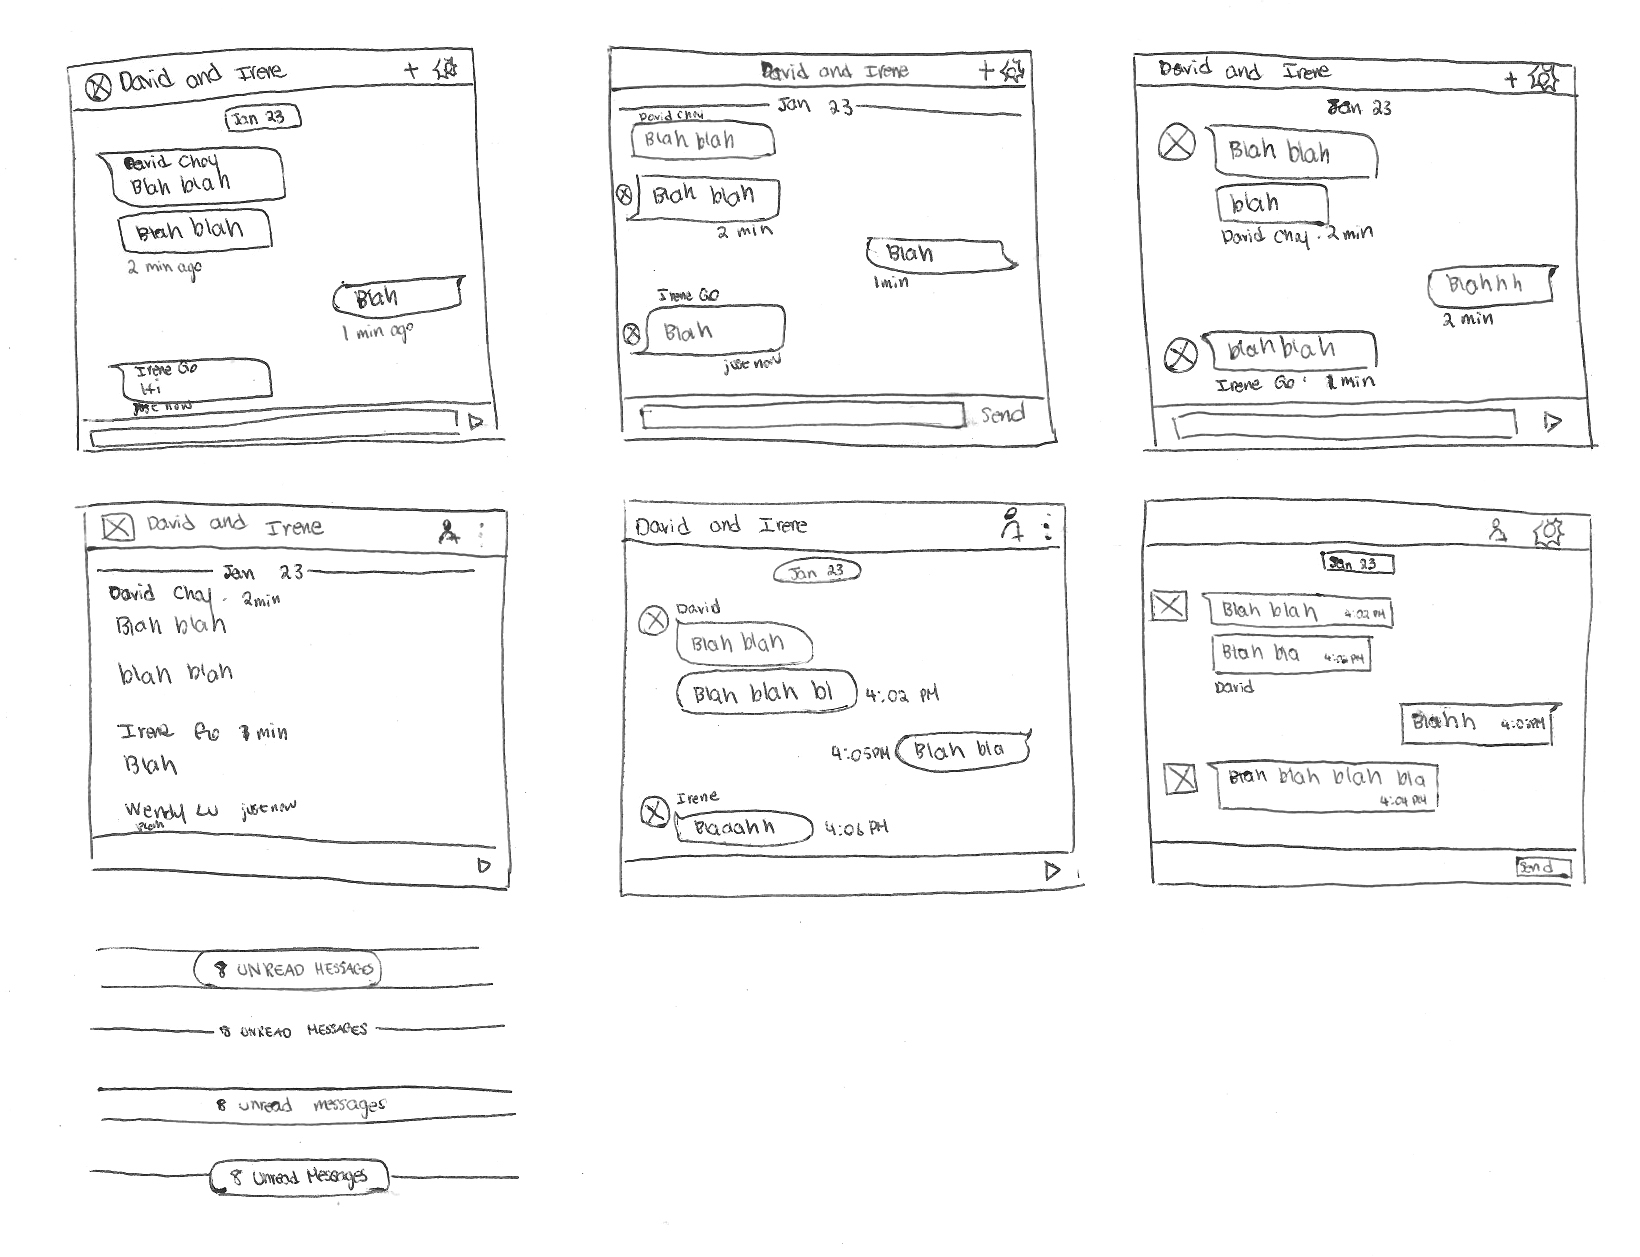 David and Irene +
Jan 23
David Choy
Blah blah
Blah blah
2 min ago
Blah
1 min ago
Irene Go
Hi
just now
David and Irene +
Jan 23
David Choy
Blah blah
Blah blah
2 min
Blah
1 min
Irene GO
Blah
just now
Send
David and Irene +
Jan 23
Blah blah
blah
David Choy . 2 min
Blahhh
2 min
blah blah
Irene Go . 1 min
David and Irene
Jan 23
David Choy . 2 min
Blah blah
blah blah
Irene Go 1 min
Blah
Wendy Lu just now
Blah
David and Irene
Jan 23
David
Blah blah
Blah blah bl 4:02 PM
4:05PM Blah bla
Irene
Blaaahh 4:06 PM
Jan 23
Blah blah 4:02 PM
Blah bla
David
Blahh
Blah blah blah bla
4:04 PM
Send
8 UNREAD MESSAGES
8 UNREAD MESSAGES
8 unread messages
8 Unread Messages